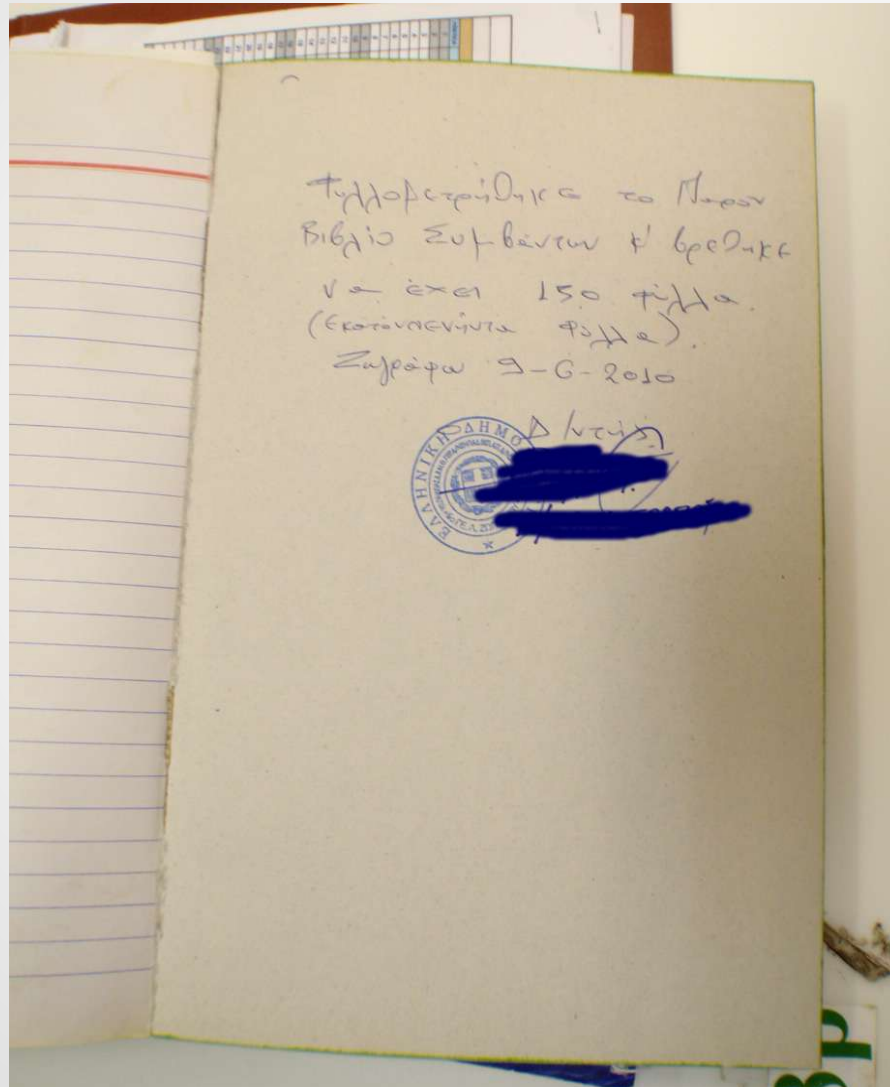 Φυλλομετρήθηκε το Παρόν
Βιβλίο Συμβάντων κ' βρέθηκε
να έχει 150 φύλλα.
(εκατόνπενήντα φύλλα).
Ζωγράφου 9-6-2010
Δ/ντής
ΕΛΛΗΝΙΚΗ ΔΗΜΟ